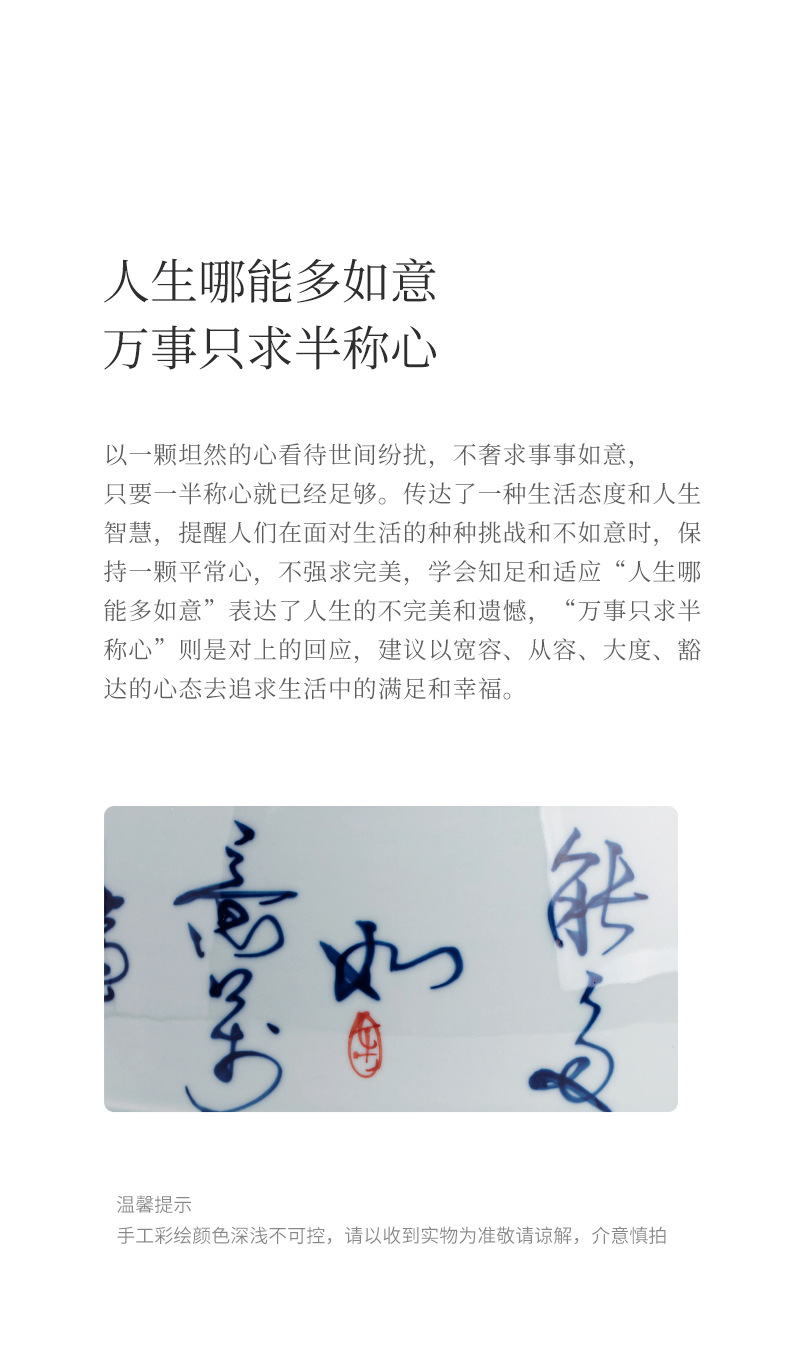 人生哪能多如意
万事只求半称心
以一颗坦然的心看待世间纷扰，不奢求事事如意，
只要一半称心就已经足够。传达了一种生活态度和人生
智慧，提醒人们在面对生活的种种挑战和不如意时，保
持一颗平常心，不强求完美，学会知足和适应“人生哪
能多如意”表达了人生的不完美和遗憾，“万事只求半
称心”则是对上的回应，建议以宽容、从容、大度、豁
达的心态去追求生活中的满足和幸福。
能多
如
意萬
温馨提示
手工彩绘颜色深浅不可控，请以收到实物为准敬请谅解，介意慎拍